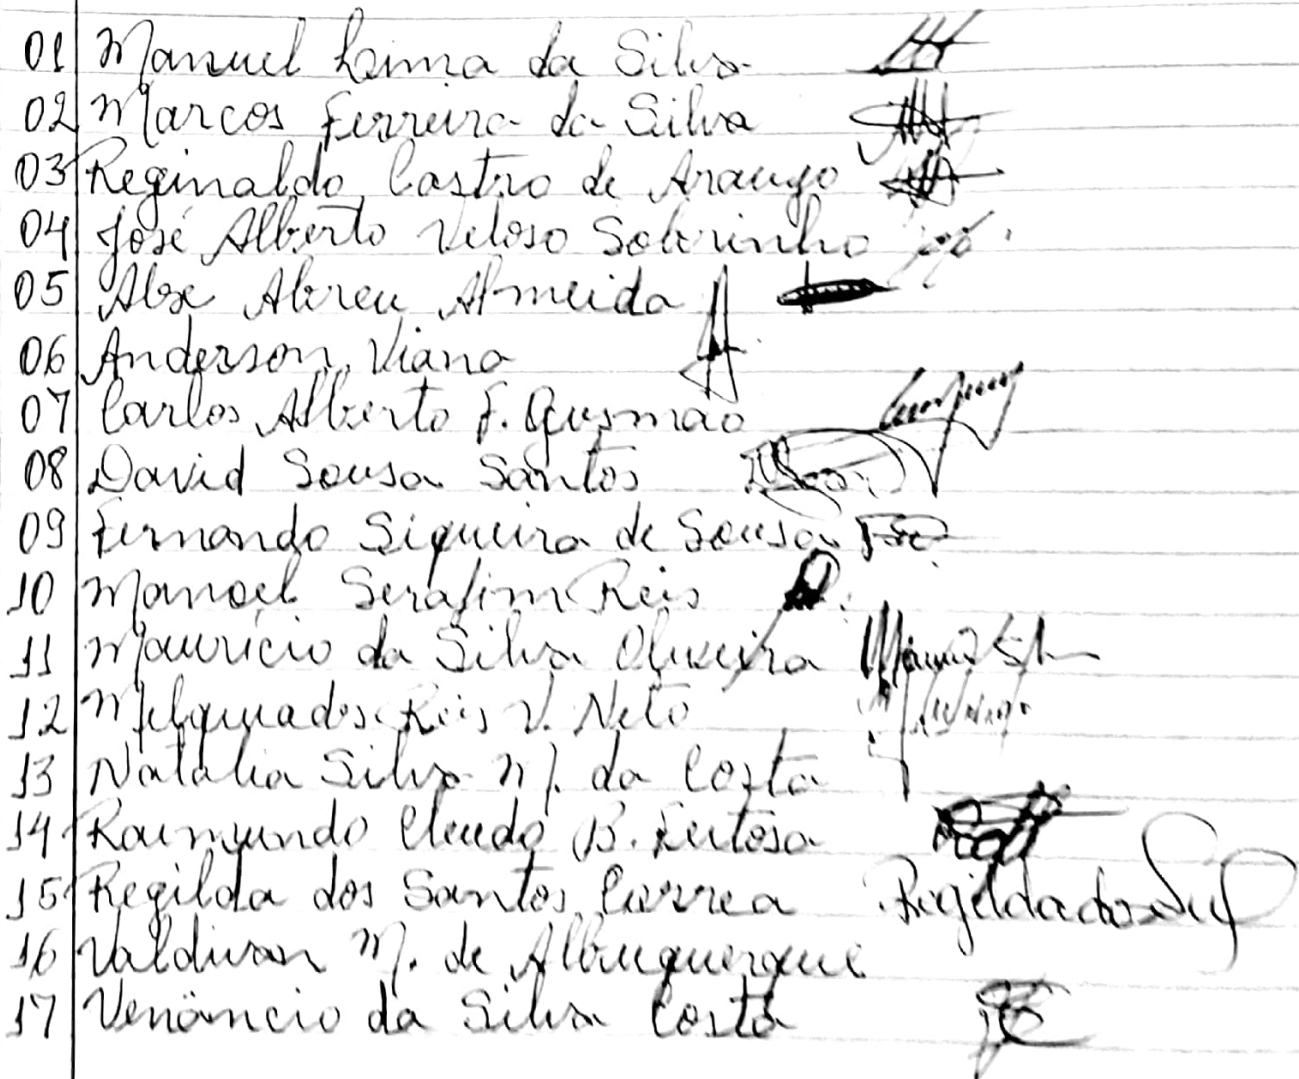 01 Manuel Lima da Silva
02 Marcos Ferreira da Silva
03 Reginaldo Castro de Araujo
04 José Alberto Veloso Sobrinho
05 Abreu Almeida
06 Anderson Viana
07 Carlos Alberto F. Gusmão
08 David Sousa Santos
09 Fernando Siqueira de Sousa
10 Manoel Serafim Reis
11 Maurício da Silva Oliveira
12 Melquiades Reis V. Neto
13 Natalia Silva M. da Costa
14 Raimundo B. Feitosa
15 Regilda dos Santos Correa Regilda dos
16 Valdivan M. de Albuquerque
17 Venâncio da Silva Costa